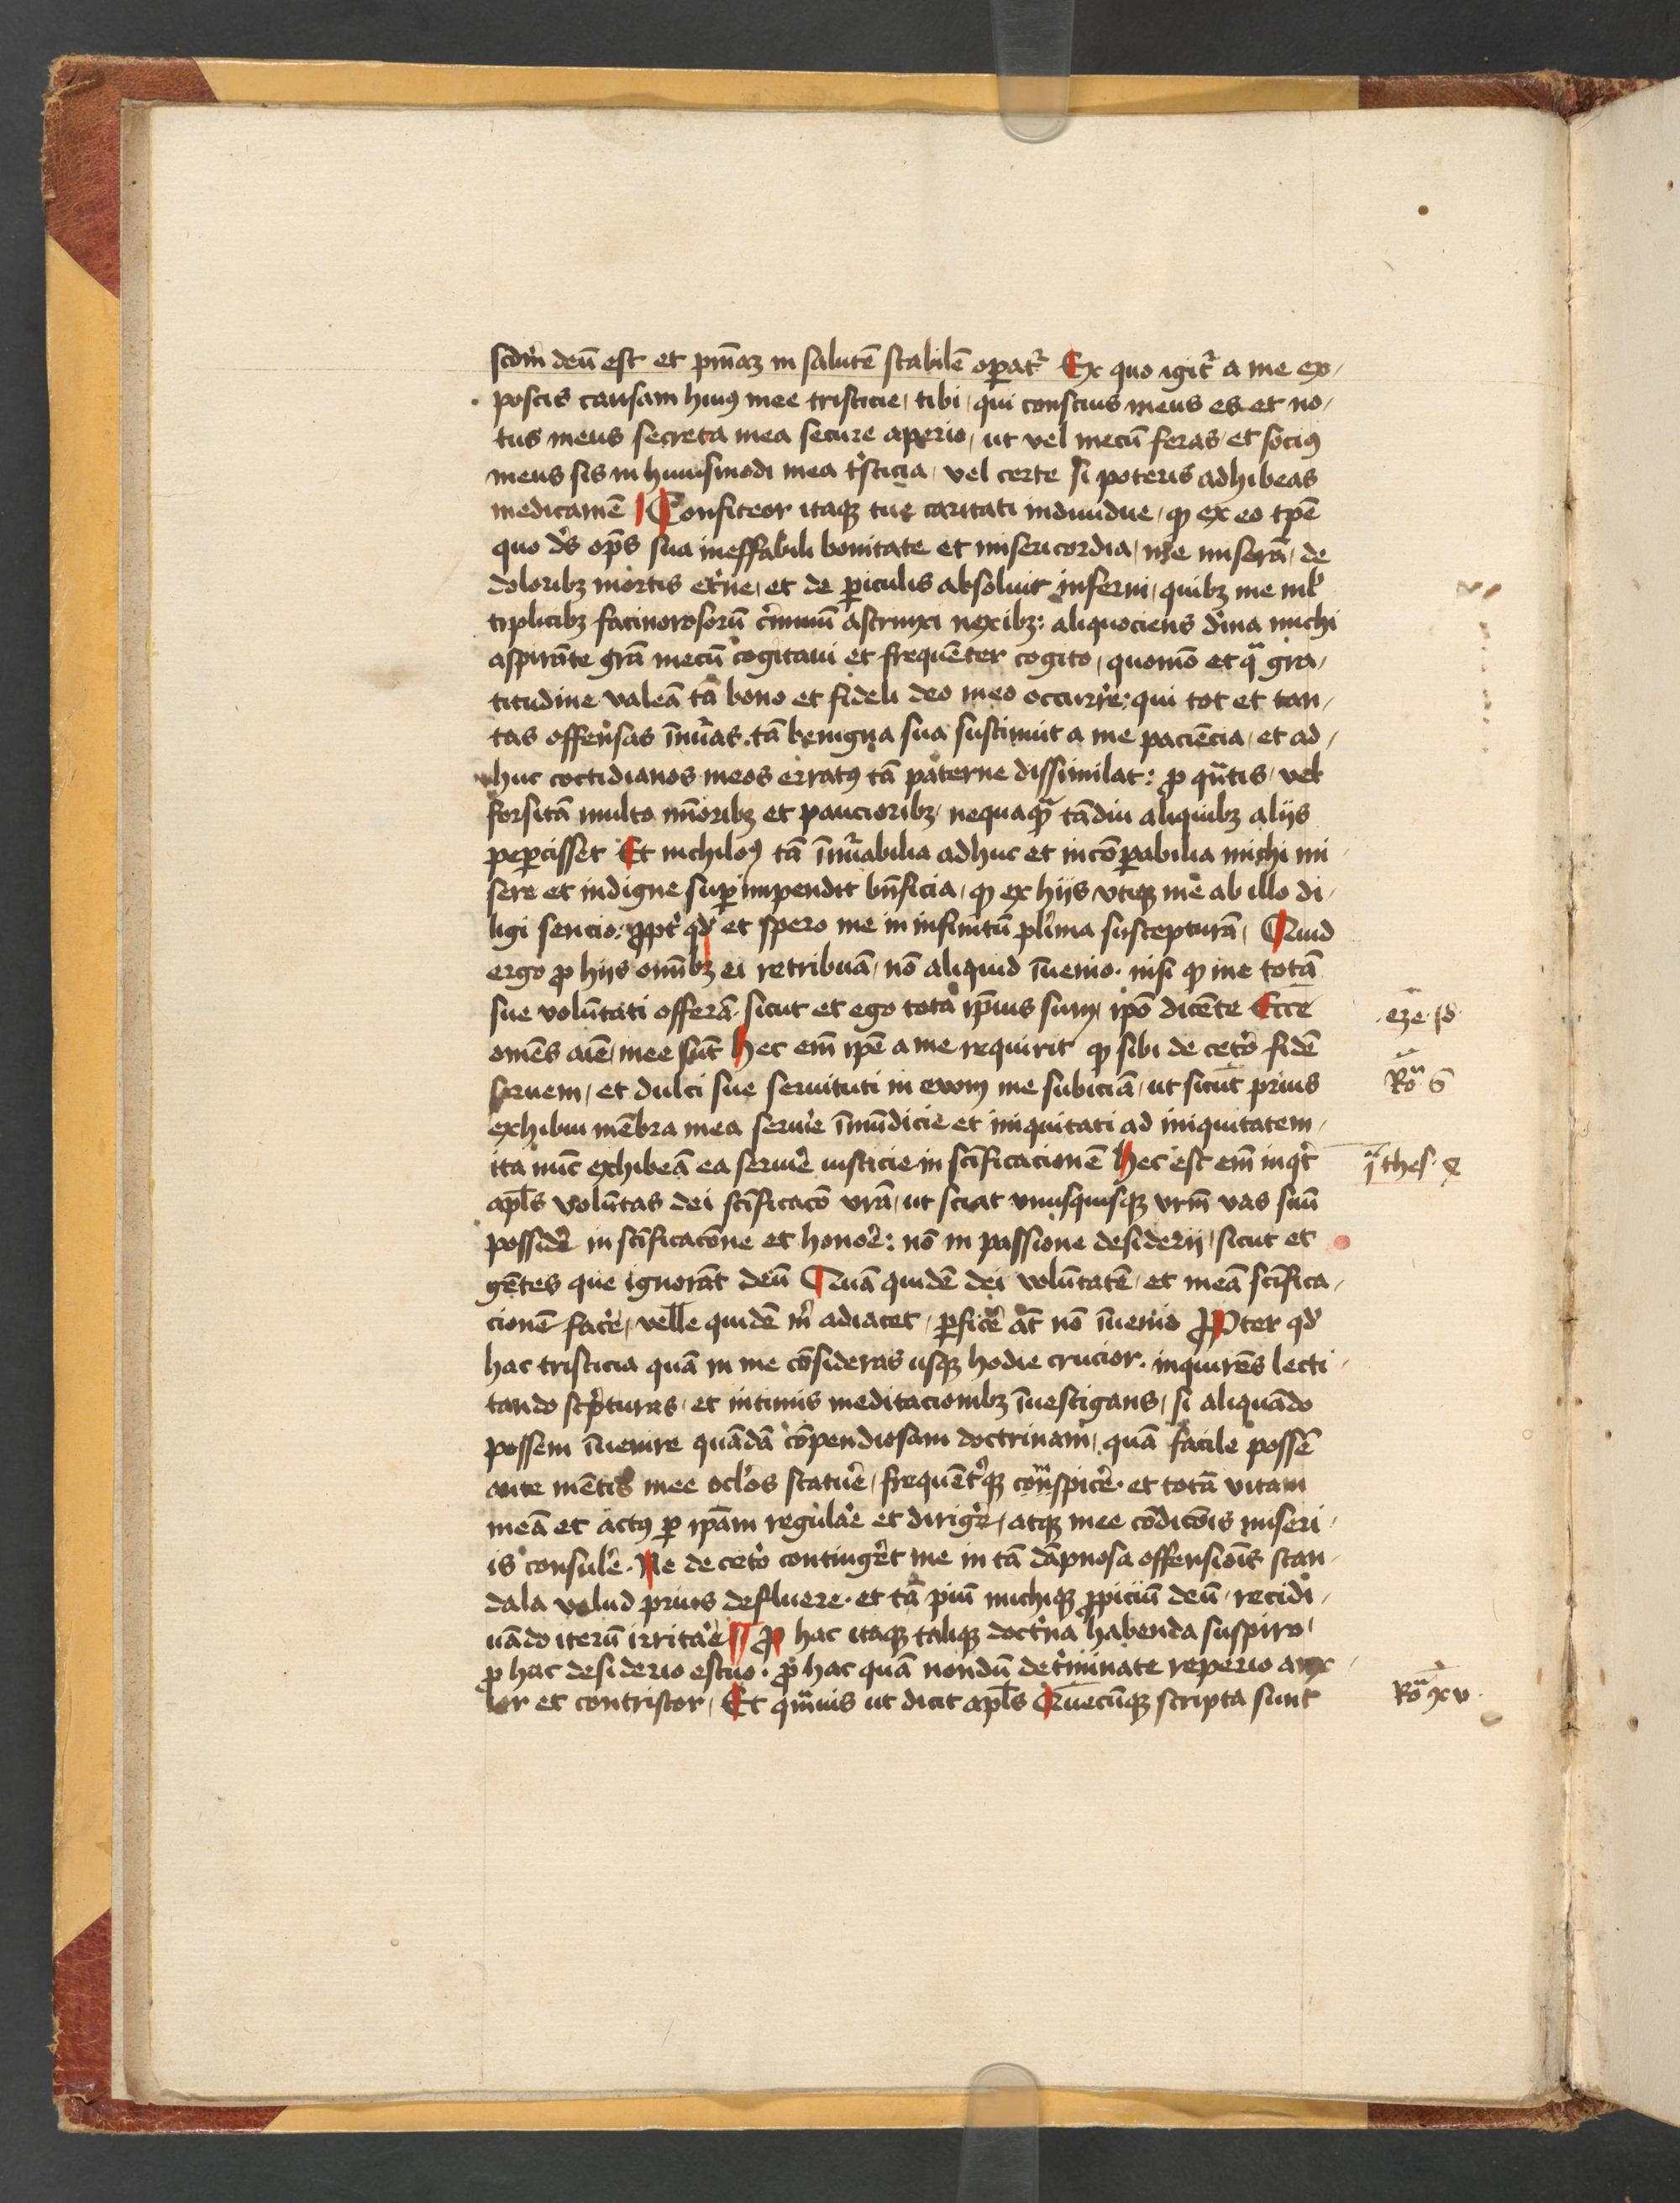 scdm̄ deū est et pnīaȝ in salutē stabilē oꝑatr̄ Ex quo igitr̄ a me ex⸗
poscis causam huiꝰ mee tristicie / tibi / qui conscius meus es et no⸗
tus meus secreta mea secure aperio / ut vel mecū feras / et sociꝰ
meus sis in huiusmodi mea tristicia / vel certe si poteris adhibeas
medicamē Confiteor itaqꝫ tue caritati indiuidue / ꝙ ex eo tꝑe
quo ds̄ oṗs sua ineffabili bonitate et misericordia / me miserā / de
doloribꝫ mortis et̾ne / et de ꝑiculis absoluit inferni / quibꝫ me ml̾
tiplicibꝫ facinorosorū c̾minū astrinxi nexibꝫ: aliquociens diīna michi
aspirāte grā mecū cogitaui et frequēter cogito / quomō et qᵃ gra⸗
titudine valeā tā bono et fideli deo meo occurre̾: qui tot et tan⸗
tas offensas īnu̾as. tā benigna sua sustinuit a me paciēcia / et ad⸗
huc cottidianos meos erratꝰ tā paterne dissimilat: ꝓ qn̄tis / vel
forsitā multo mīoribꝫ et paucioribꝫ / nequaqᵃꝫ tādiu aliquibꝫ alijs
peꝑcisset Et nichiloꝰ tā īnu̾abilia adhuc et incōꝑabilia michi mi⸗
sere et indigne suꝑimpendit bn̄ficia / ꝙ ex hijs / vtiqꝫ me ab illo di⸗
ligi sencio: ꝓpt̾ qd̾ et spero me in infinitū pl̾ima suscepturā / Quid
ergo ꝓ hijs omībꝫ ei retribuā / nō aliquid īuenio. nisi ꝙ me totā
sue volūtati offerā. sicut et ego tota ip̄ius sum / ip̄o dicēte Ecce
omēs aīe / mee sūt Hec em̄ ip̄e a me requirit ꝙ sibi de cet̾o fidē
seruem / et dulci sue seruituti in euom me subiciā / ut sicut prius
exhibui mēbra mea serui̾e īmūdicie et iniquitati ad iniquitatem /
ita nūc exhibeā ea serui̾e iusticie in scīficacionē Hec est em̄ inqt̾
apl̄s volūtas dei scīficacō vrā / ut sciat vnusquisqꝫ vrm̄ vas suū
posside̾ in scīficatōne et hono̾e: nō in passione desiderij / sicut et
gētes que ignorāt deū Quā quidē dei volūtatē / et meā scīfica⸗
cionē face̾ / velle quidē m̾ adiacet / ꝑfice̾ at̄ nō īuenio Propter qd̾
hac tristicia quā in me cōsideras usqꝫ hodie crucior. inquirēs lecti⸗
tando sc̾pturas / et intimis meditacionibꝫ īuestigans / si aliquādo
possem īuenire quādā cōpendiosam doctrinam / quā facile possē
ante mētis mee ocl̾os statue̾ / frequēt̾qꝫ conspice̾. et totā vitam
meā et actꝰ ꝑ ip̄am regula̾e et dirige̾ / atqꝫ mee cōdicōis miseri⸗
is consule̾. Ne de cet̾o continge̾t me in tā dāpnosa offensiōis scan⸗
dala velud prius defluere. et tā piū michiqꝫ ꝓpiciū deū / recidi⸗
uādo iterū irrita̾e Pro hac itaqꝫ taliqꝫ doct̾na habenda suspiro /
ꝓ hac desiderio estuo. ꝓ hac quā nondū det̾minate reperio anx⸗
ior et contristor / Et qm̄uis ut dicit apl̄s Quecūqꝫ scripta sunt
eze. 18
Ro 6
1 thes. 4
Ro xv